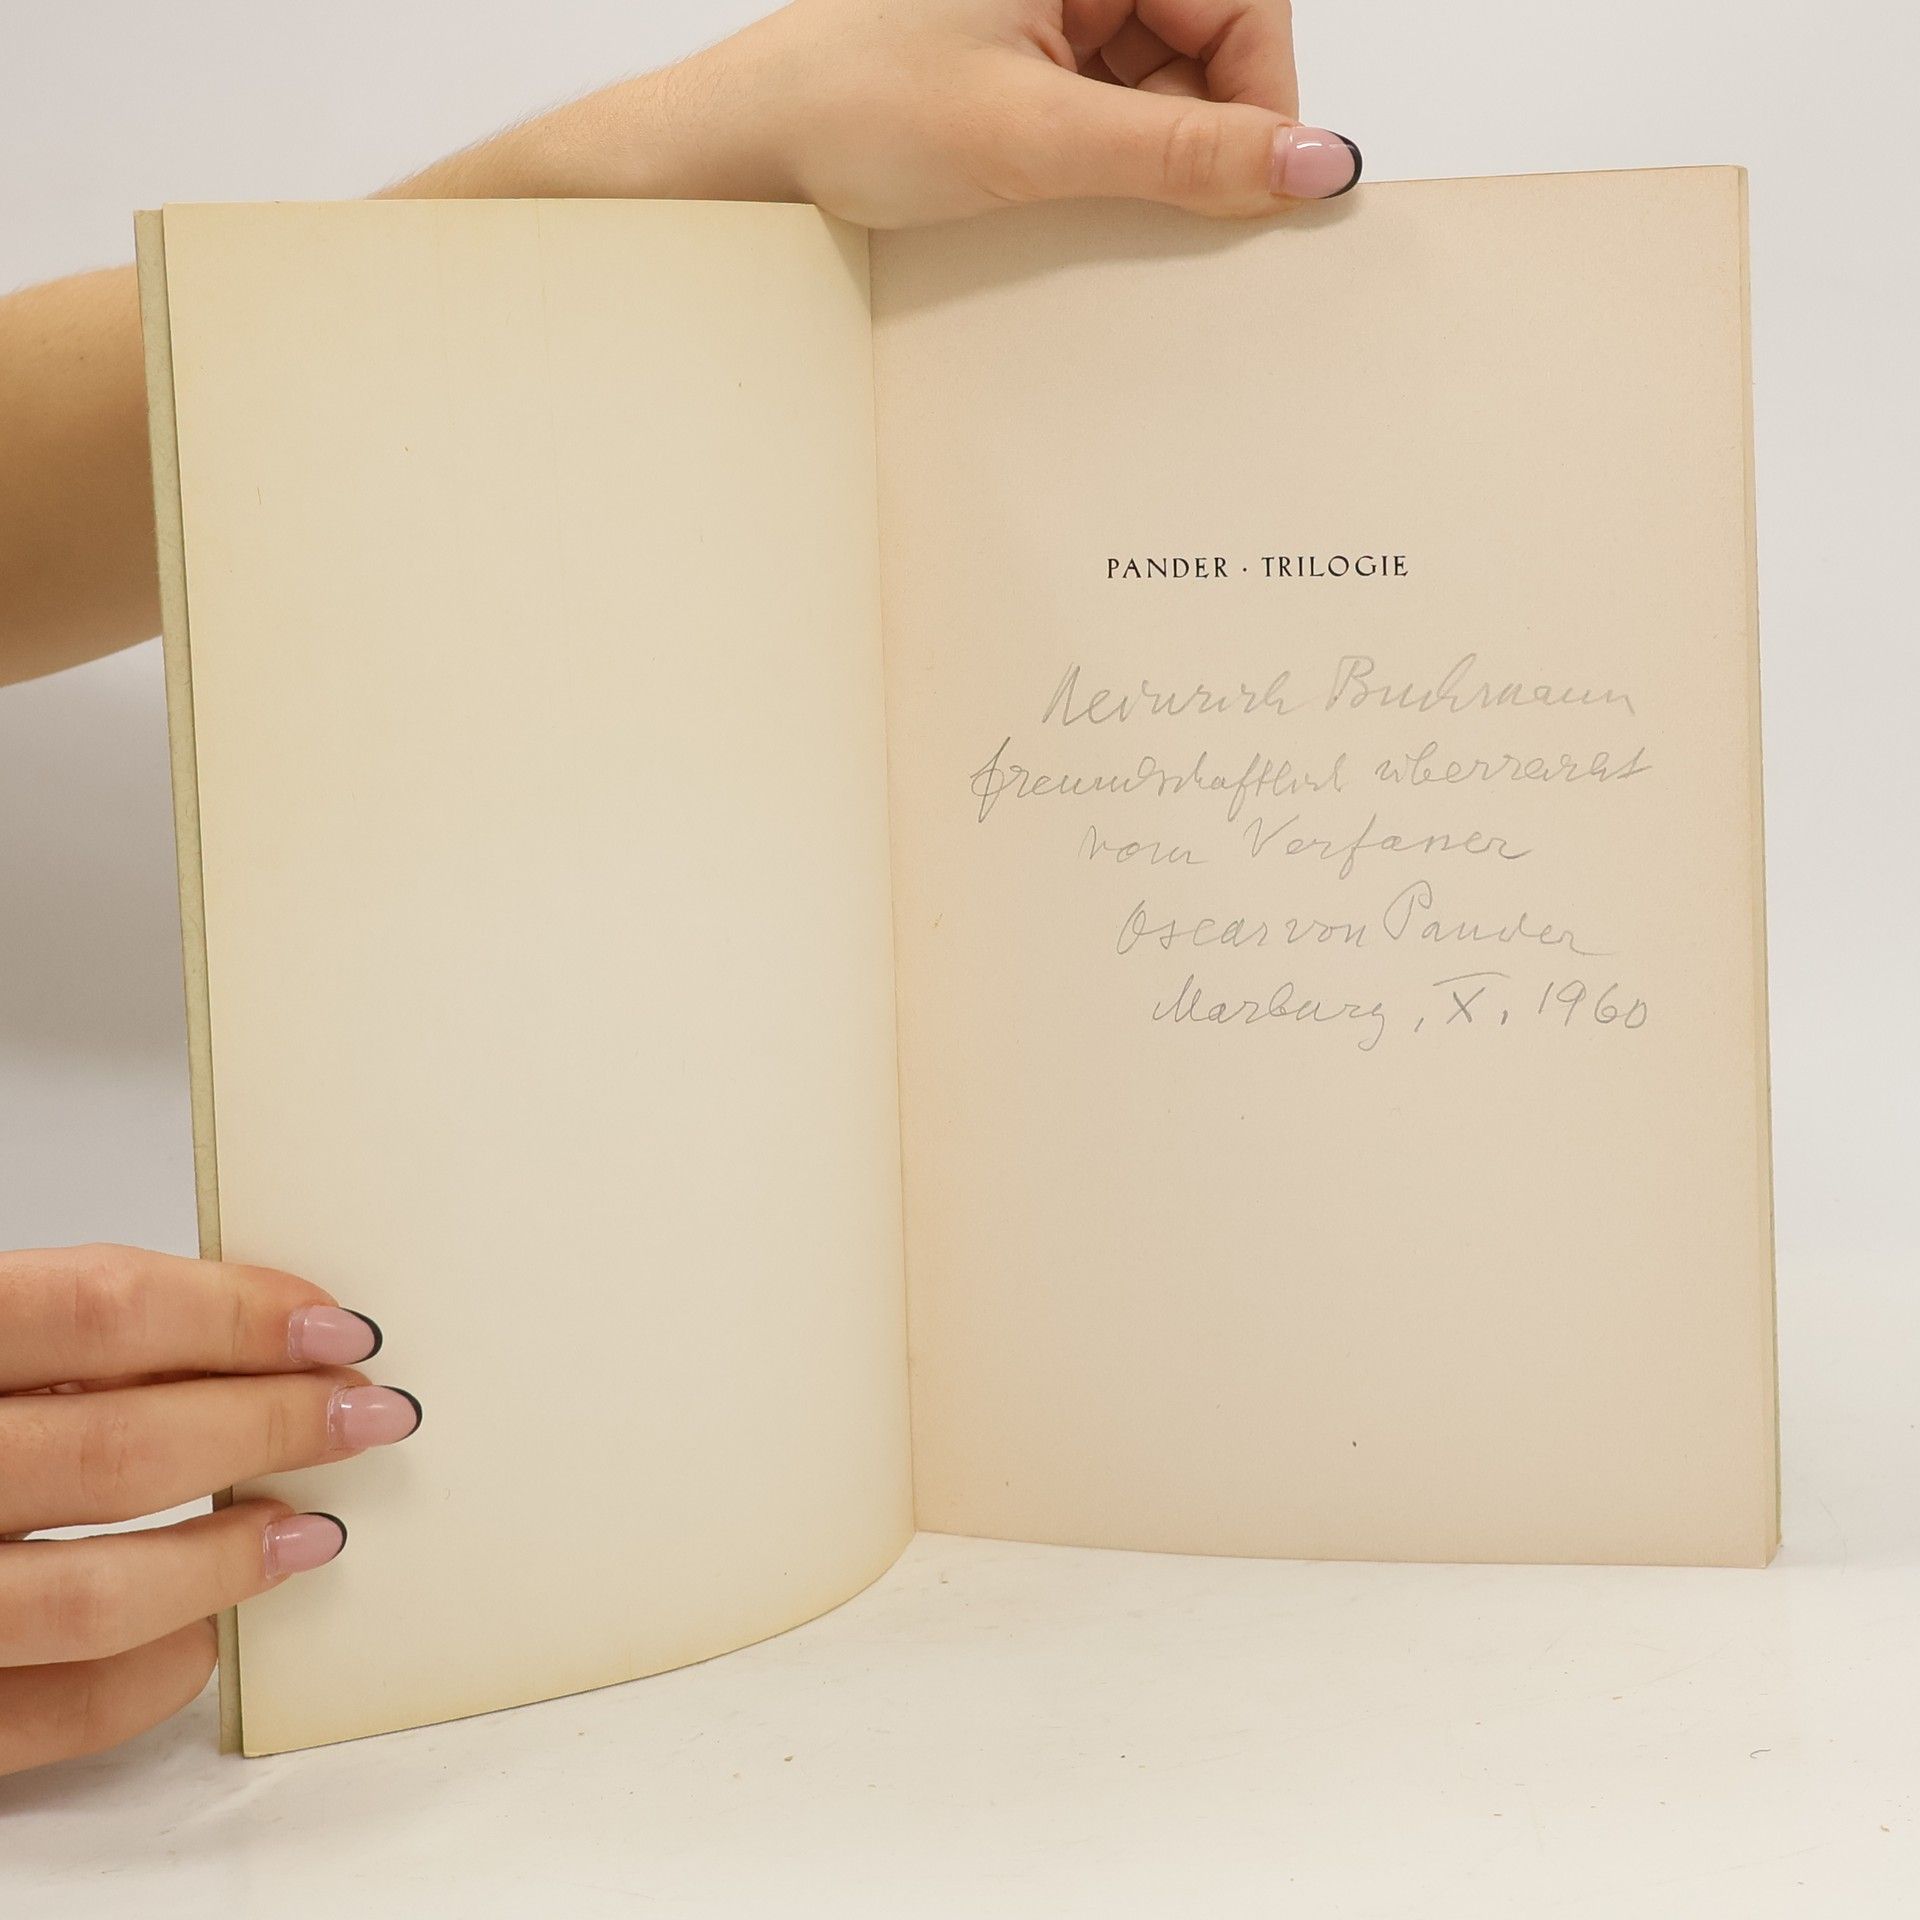 PANDER · TRILOGIE
Heinrich Buchmann
freundschaftlich überreicht
vom Verfasser
Oscar von Pander
Marburg, X. 1960